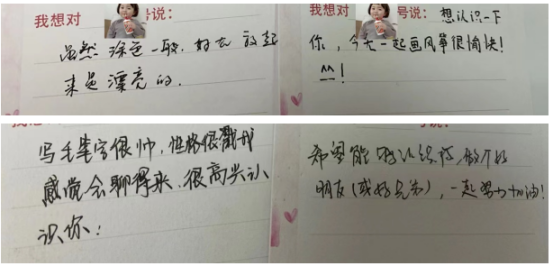 我想对
号说：
虽然涂色一般，但
起来是漂亮的.
我想对
号说：想认识一下
你，今天一起画风筝很愉快！
^^！
写毛笔字很帅，性格很戳我
感觉会聊得来，很高兴认
识你！
号说：
希望能
朋友（或好兄弟），一起努力加油！